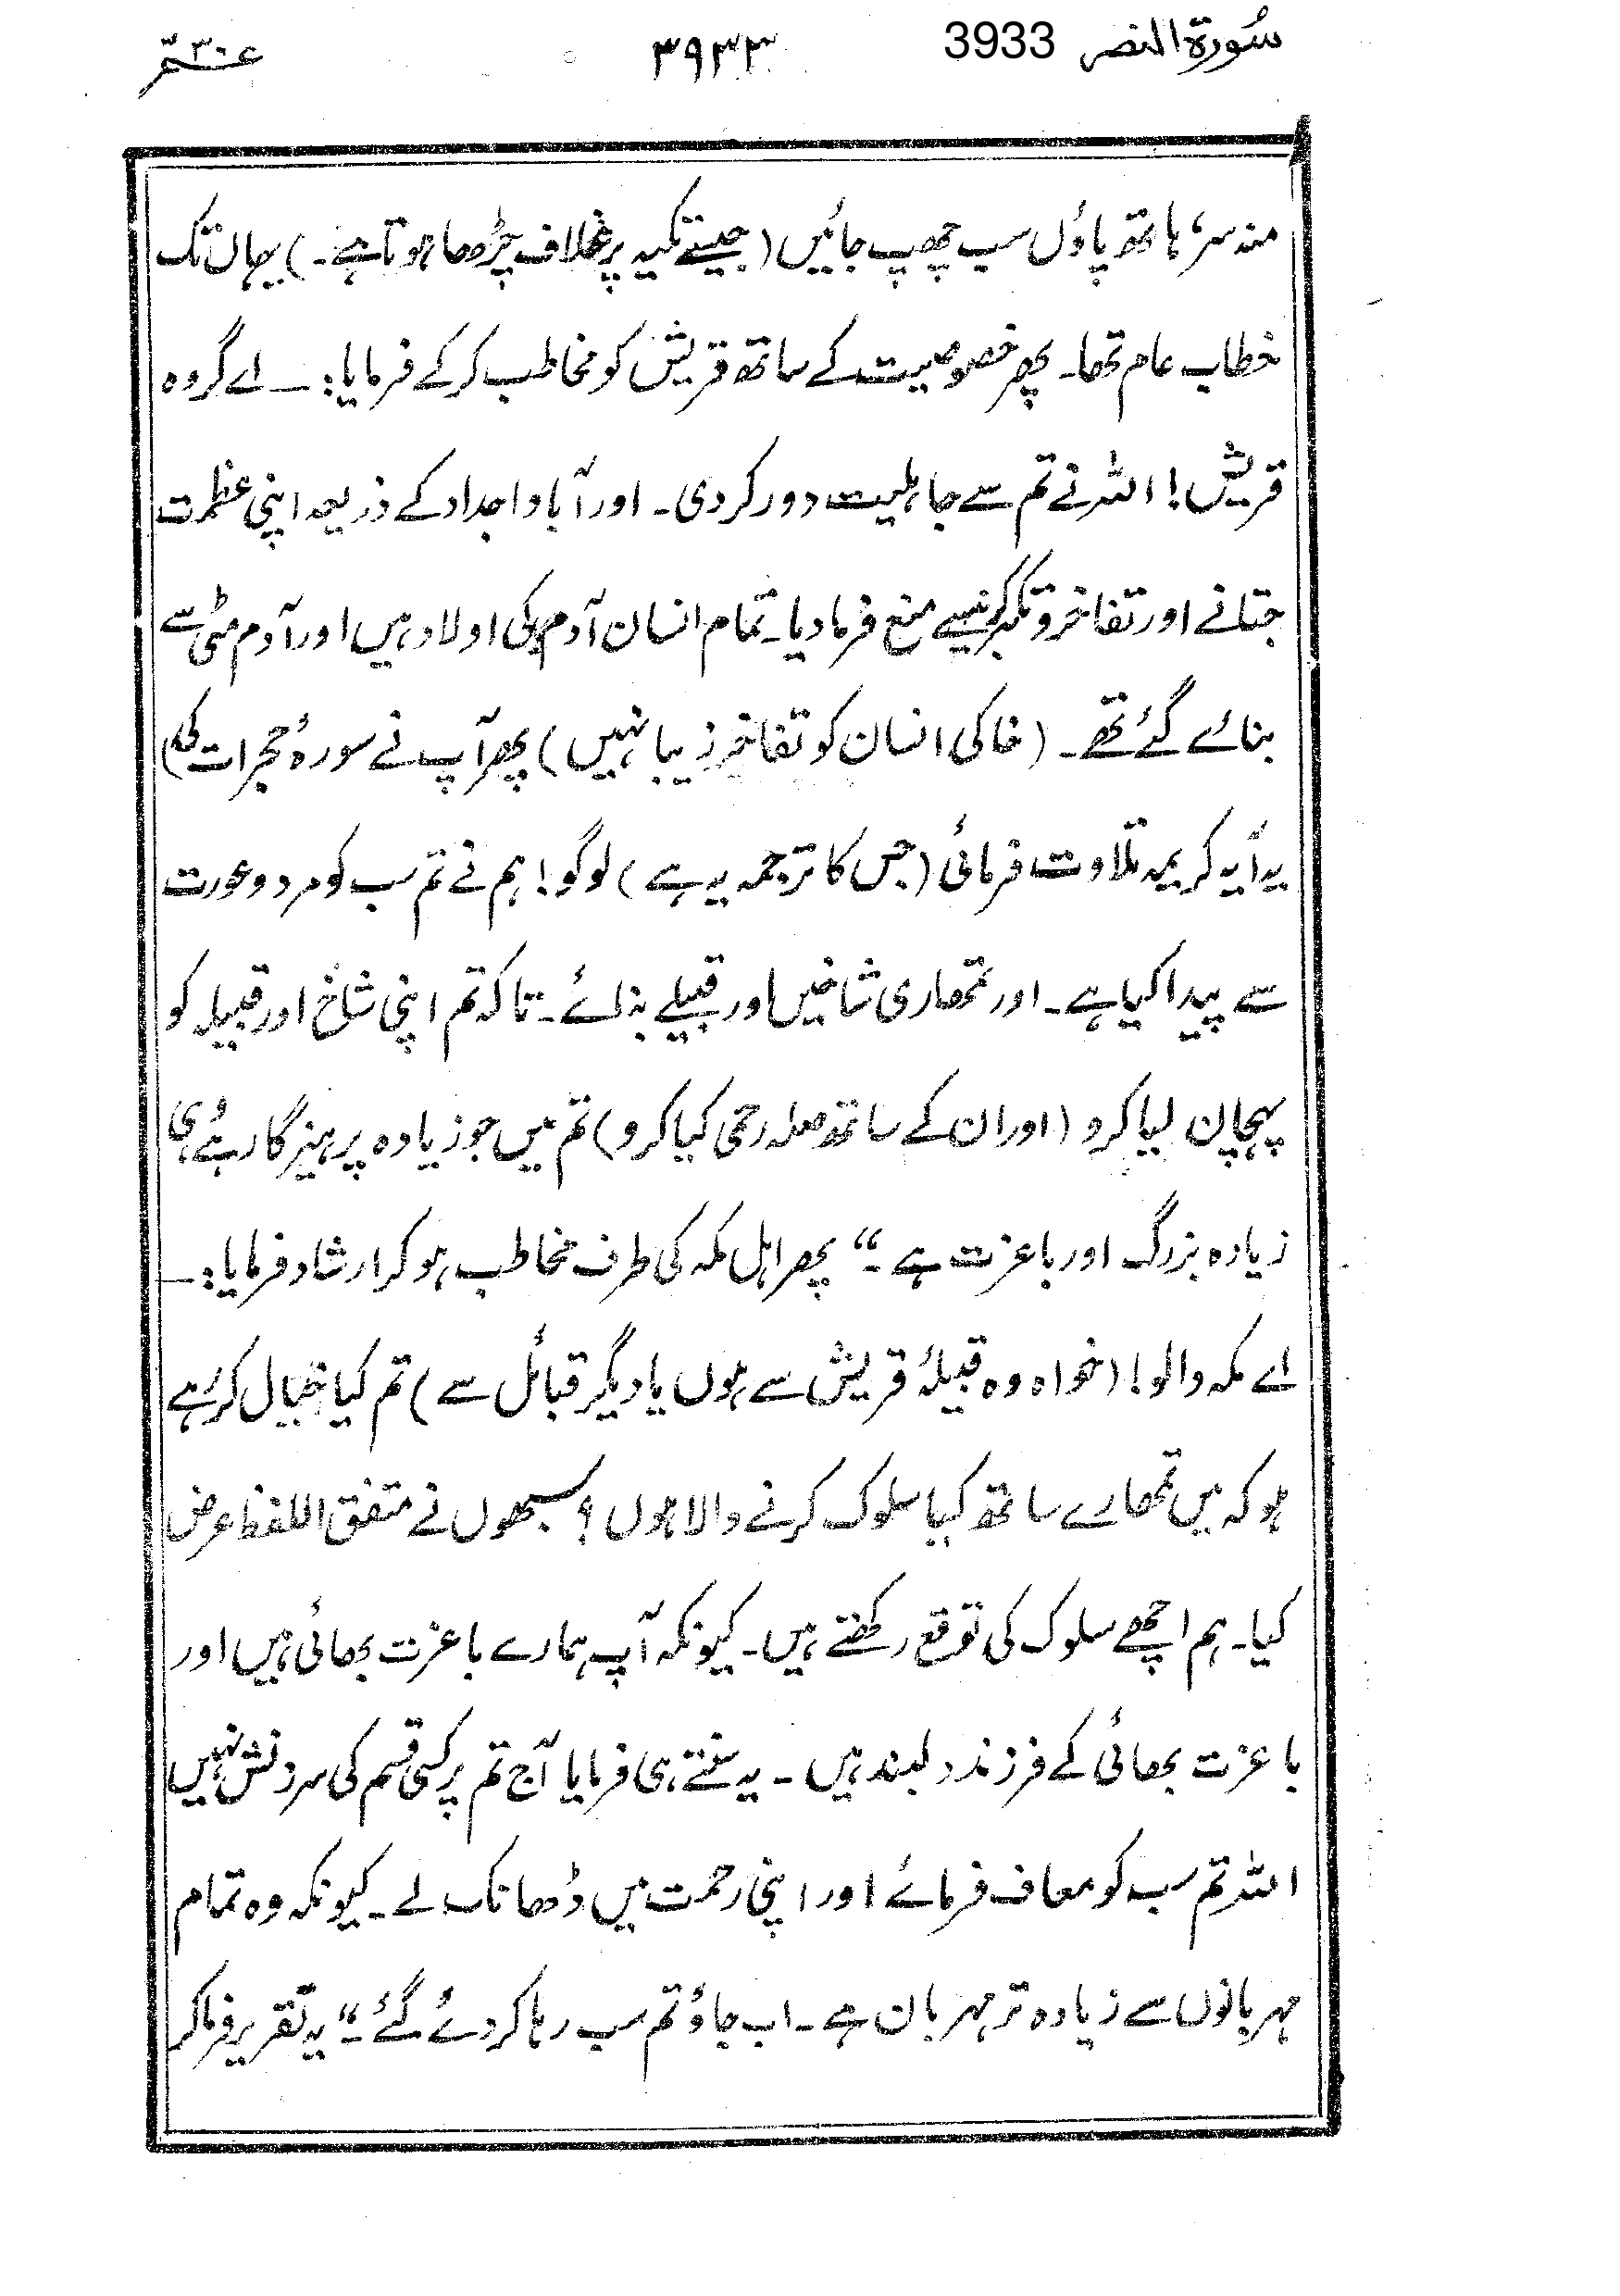 سُورة النصر 3933 ۳۹۳۳ عمّ ۳۰
منہ سر، ہاتھ پاؤں سب چھپ جائیں (جیسے تکیہ پر غلاف چڑھا ہوتا ہے۔) یہاں تک
خطاب عام تھا۔ پھر خصوصیت کے ساتھ قریش کو مخاطب کر کے فرمایا:۔ اے گروہ
قریش! اللہ نے تم سے جاہلیت دور کر دی۔ اور آبا و اجداد کے ذریعہ اپنی عظمت
جتانے اور تفاخر و تکبر کرنیسے منع فرمادیا۔ تمام انسان آدم کی اولاد ہیں اور آدم مٹی سے
بنائے گئے تھے۔ (خاکی انسان کو تفاخر زیبا نہیں) پھر آپ نے سورۂ حجرات کی)
یہ آیہ کریمہ تلاوت فرمائی (جس کا ترجمہ یہ ہے) لوگو! ہم نے تم سب کو مرد و عورت
سے پیدا کیا ہے۔ اور تمھاری شاخیں اور قبیلے بنائے۔ تاکہ تم اپنی شاخ اور قبیلہ کو
پہچان لیا کرو (اور ان کے ساتھ صلہ رحمی کیا کرو) تم میں جو زیادہ پرہیزگار ہے وہی
زیادہ بزرگ اور باعزت ہے۔“ پھر اہل مکہ کی طرف مخاطب ہو کر ارشاد فرمایا:۔
اے مکہ والو! (خواہ وہ قبیلۂ قریش سے ہوں یا دیگر قبائل سے) تم کیا خیال کر رہے
ہو کہ میں تمھارے ساتھ کیا سلوک کرنے والا ہوں؟ سبھوں نے متفق اللفظ عرض
کیا۔ ہم اچھے سلوک کی توقع رکھتے ہیں۔ کیونکہ آپ ہمارے باعزت بھائی ہیں اور
باعزت بھائی کے فرزند دلبند ہیں۔ یہ سنتے ہی فرمایا آج تم پر کسی قسم کی سرزنش نہیں
اللہ تم سب کو معاف فرمائے اور اپنی رحمت میں ڈھانک لے۔ کیونکہ وہ تمام
مہربانوں سے زیادہ تر مہربان ہے۔ اب جاؤ تم سب رہا کر دئے گئے۔“ یہ تقریر فرما کر